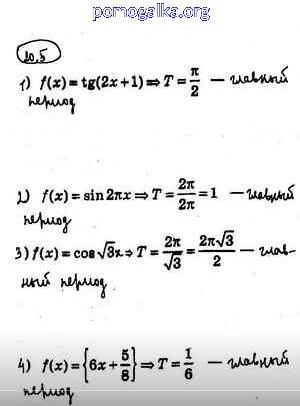 pomogalka.org
20.5
1) f(x) = tg(2x+1) ⇒ T = π/2 — главный
период
2) f(x) = sin 2πx ⇒ T = 2π/2π = 1 — главный
период
3) f(x) = cos √3x ⇒ T = 2π/√3 = 2π√3/2 — глав-
ный период
4) f(x) = {6x + 5/8} ⇒ T = 1/6 — главный
период